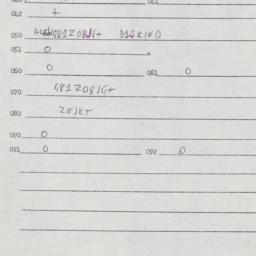 042 +
050 DISKIND
051 0
060 0 061 0
070 G81Z08JG+
080 ZEJKT
090 0
091 0 092 0